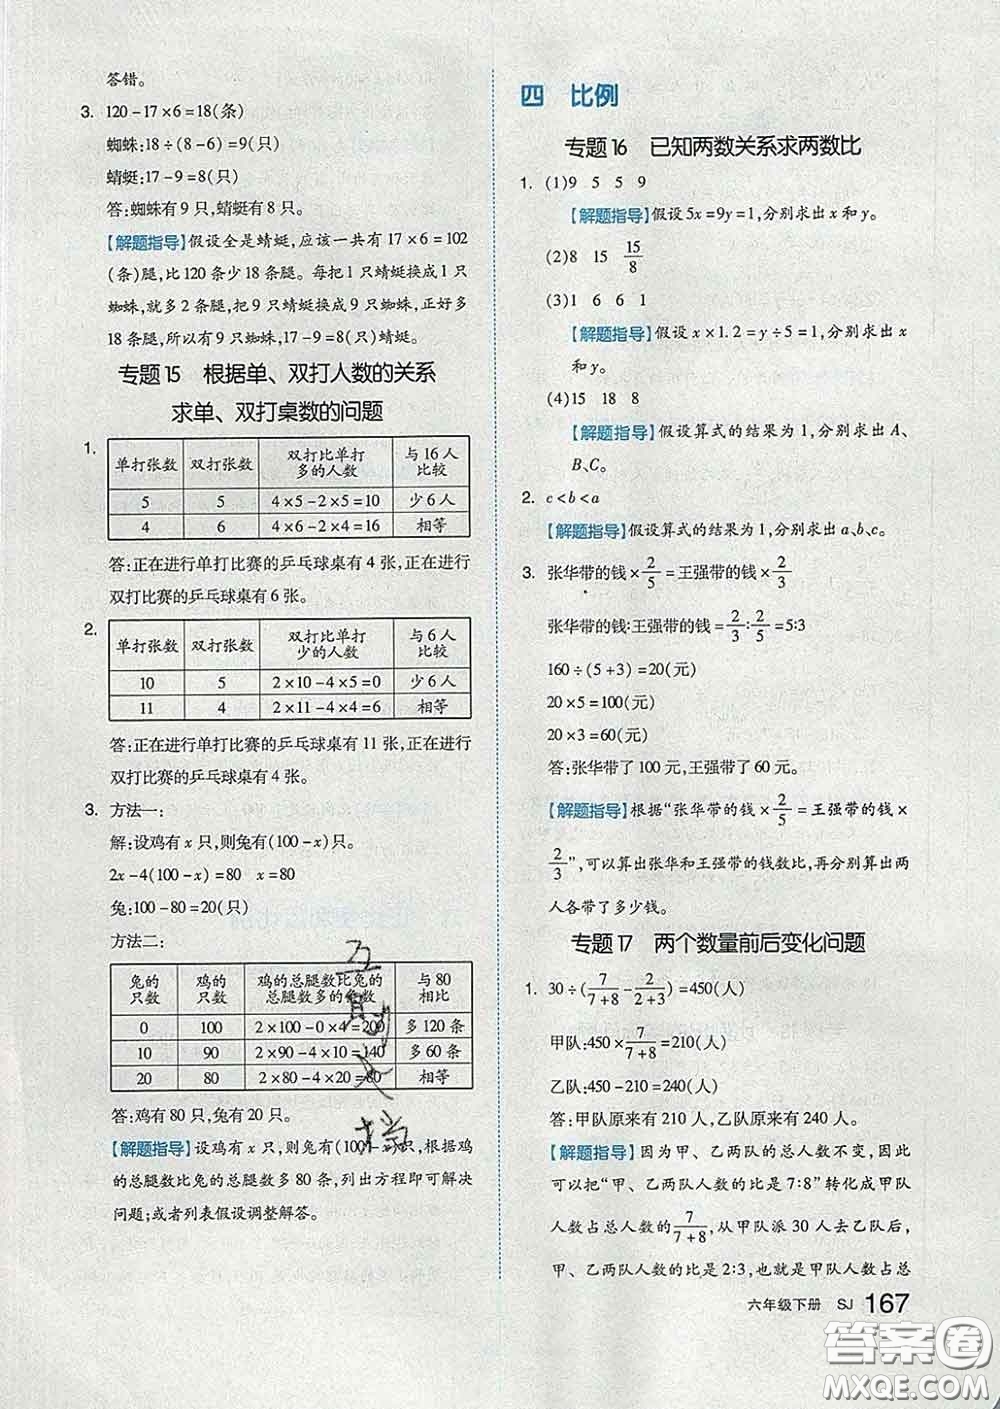 答错。
3. 120-17×6=18(条)
蜘蛛:18÷(8-6)=9(只)
蜻蜓:17-9=8(只)
答:蜘蛛有9只,蜻蜓有8只。
【解题指导】假设全是蜻蜓,应该一共有17×6=102
(条)腿,比120条少18条腿。每把1只蜻蜓换成1只
蜘蛛,就多2条腿,把9只蜻蜓换成9只蜘蛛,正好多
18条腿,所以有9只蜘蛛,17-9=8(只)蜻蜓。
专题15 根据单、双打人数的关系
求单、双打桌数的问题
1.
单打张数 双打张数 双打比单打多的人数 与16人比较
5 5 4×5-2×5=10 少6人
4 6 4×6-2×4=16 相等
答:正在进行单打比赛的乒乓球桌有4张,正在进行
双打比赛的乒乓球桌有6张。
2.
单打张数 双打张数 双打比单打少的人数 与6人比较
10 5 2×10-4×5=0 少6人
11 4 2×11-4×4=6 相等
答:正在进行单打比赛的乒乓球桌有11张,正在进行
双打比赛的乒乓球桌有4张。
3. 方法一:
解:设鸡有x只,则兔有(100-x)只。
2x-4(100-x)=80 x=80
兔:100-80=20(只)
方法二:
兔的只数 鸡的只数 鸡的总腿数比兔的总腿数多的条数 与80相比
0 100 2×100-0×4=200 多120条
10 90 2×90-4×10=140 多60条
20 80 2×80-4×20=80 相等
答:鸡有80只,兔有20只。
【解题指导】设鸡有x只,则兔有(100-x)只,根据鸡
的总腿数比兔的总腿数多80条,列出方程即可解决
问题;或者列表假设调整解答。
四 比例
专题16 已知两数关系求两数比
1. (1)9 5 5 9
【解题指导】假设5x=9y=1,分别求出x和y。
(2)8 15 15/8
(3)1 6 6 1
【解题指导】假设x×1.2=y÷5=1,分别求出x
和y。
(4)15 18 8
【解题指导】假设算式的结果为1,分别求出A、
B、C。
2. c<b<a
【解题指导】假设算式的结果为1,分别求出a、b、c。
3. 张华带的钱×2/5=王强带的钱×2/3
张华带的钱:王强带的钱=2/3:2/5=5:3
160÷(5+3)=20(元)
20×5=100(元)
20×3=60(元)
答:张华带了100元,王强带了60元。
【解题指导】根据“张华带的钱×2/5=王强带的钱×
2/3”,可以算出张华和王强带的钱数比,再分别算出两
人各带了多少钱。
专题17 两个数量前后变化问题
1. 30÷(7/(7+8)-2/(2+3))=450(人)
甲队:450×7/(7+8)=210(人)
乙队:450-210=240(人)
答:甲队原来有210人,乙队原来有240人。
【解题指导】因为甲、乙两队的总人数不变,因此
可以把“甲、乙两队人数的比是7:8”转化成甲队
人数占总人数的7/(7+8),从甲队派30人去乙队后,
甲、乙两队人数的比是2:3,也就是甲队人数占总
六年级下册 SJ 167
答案圈
MXQE.COM